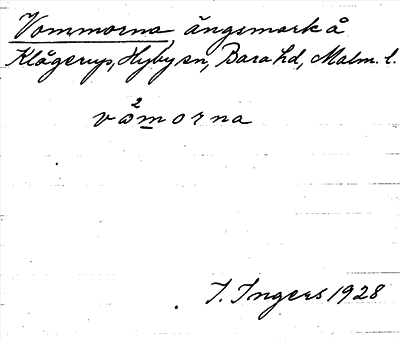 Vommorna, ängsmark å
Klågerup, Hyby sn, Bara hd, Malm. l.
2
våmorna
I. Ingers 1928